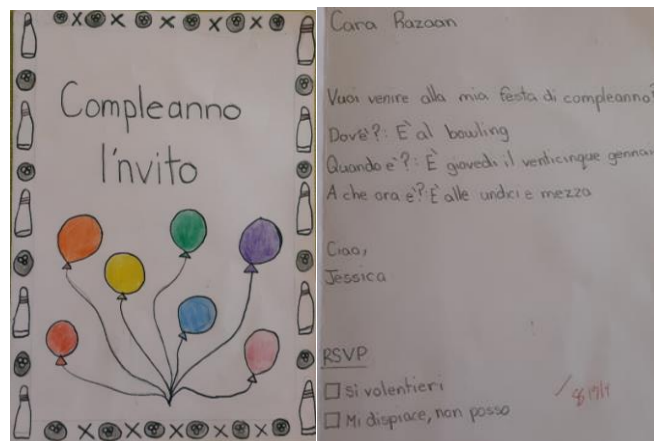 Compleanno
l'invito
Cara Razaan
Vuoi venire alla mia festa di compleanno?
Dov'è?: È al bowling
Quando è?: È giovedì il venticinque gennai
A che ora è?: È alle undici e mezza
Ciao,
Jessica
RSVP
Si volentieri
Mi dispiace, non posso